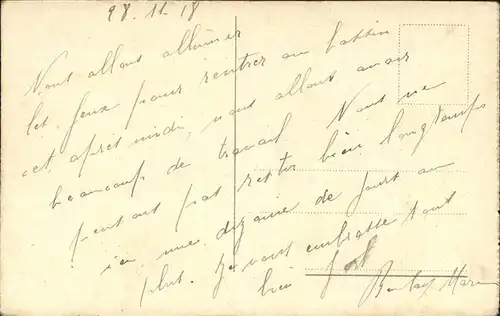 28.11.18
Nous allons allumer
les feux pour rentrer au bassin
cet après midi, nous allons avoir
beaucoup de travail. Nous ne
pensons pas rester bien longtemps
une dizaine de jours au
plus. Je vous embrasse tous
bien fort